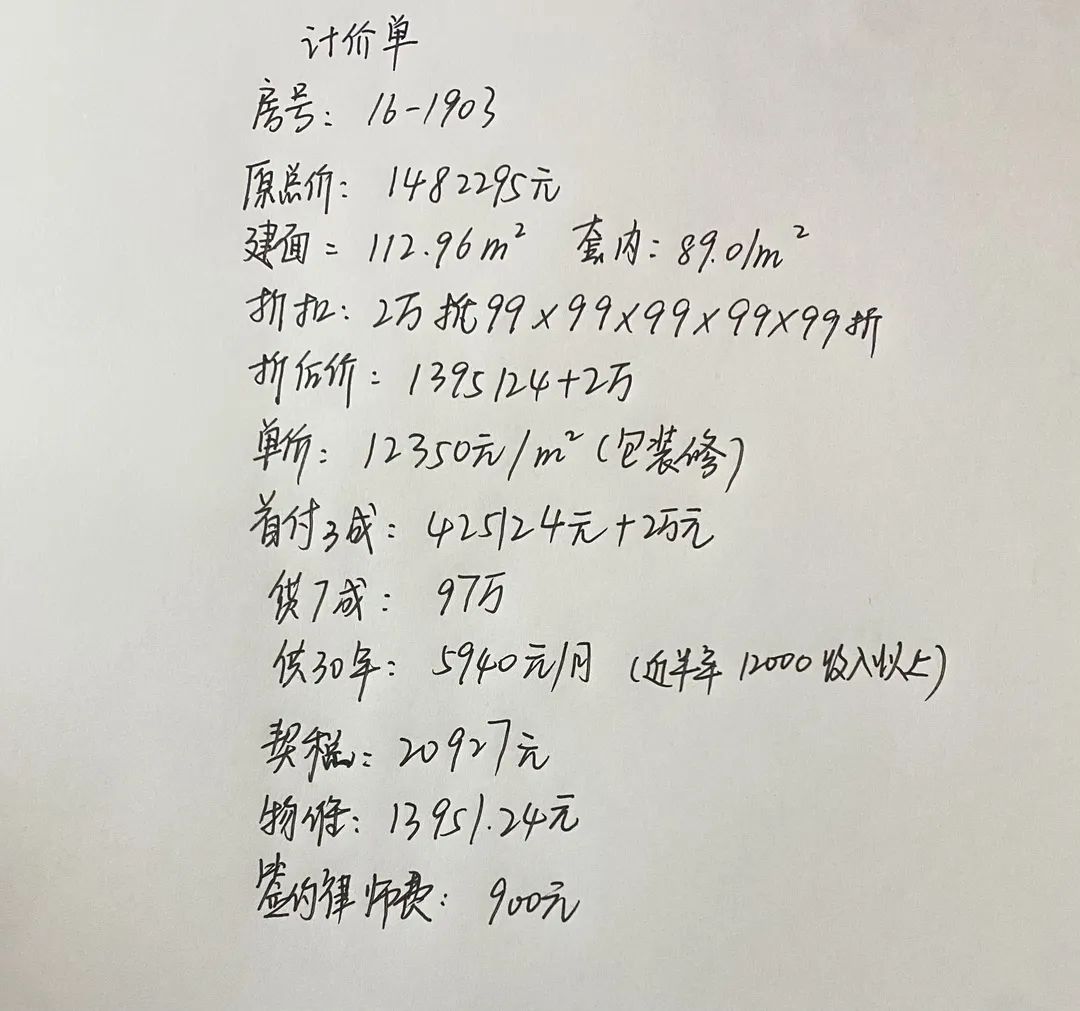 计价单
房号：16-1903
原总价：1482295元
建面=112.96m² 套内：89.01m²
折扣：2万抵99×99×99×99×99折
折后价：1395124+2万
单价：12350元/m²（包装修）
首付3成：425124元+2万元
供7成：97万
供30年：5940元/月（近半年12000收入以上）
契税：20927元
物维：13951.24元
签约律师费：900元